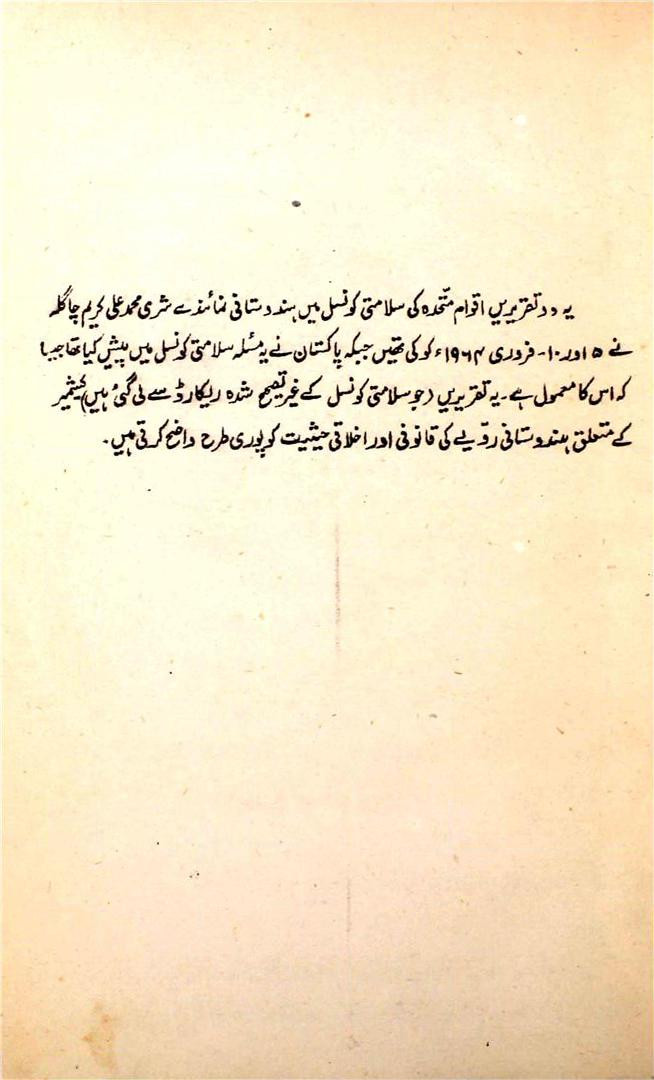 یہ دو تقریریں اقوام متّحدہ کی سلامتی کونسل میں ہندوستانی نمائندے شری محمد علی کریم چاگلہ
نے ۵ اور ۱۰۔ فروری ۱۹۶۴ء کو کی تھیں جبکہ پاکستان نے یہ مسئلہ سلامتی کونسل میں پیش کیا تھا جیسا
کہ اس کا معمول ہے۔ یہ تقریریں (جو سلامتی کونسل کے غیر تصیح شدہ ریکارڈ سے لی گئی ہیں) کشمیر
کے متعلق ہندوستانی روّیے کی قانونی اور اخلاقی حیثیت کو پوری طرح واضح کرتی ہیں۔